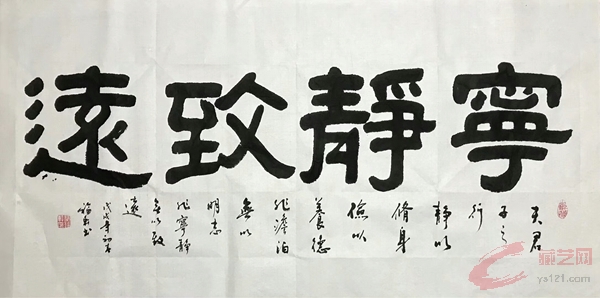 寧靜致遠
夫君
子之
行
靜以
脩身
儉以
養德
非澹泊
無以
明志
非寧靜
無以致
遠
戊戌年初
書
藏艺网
ys121.com